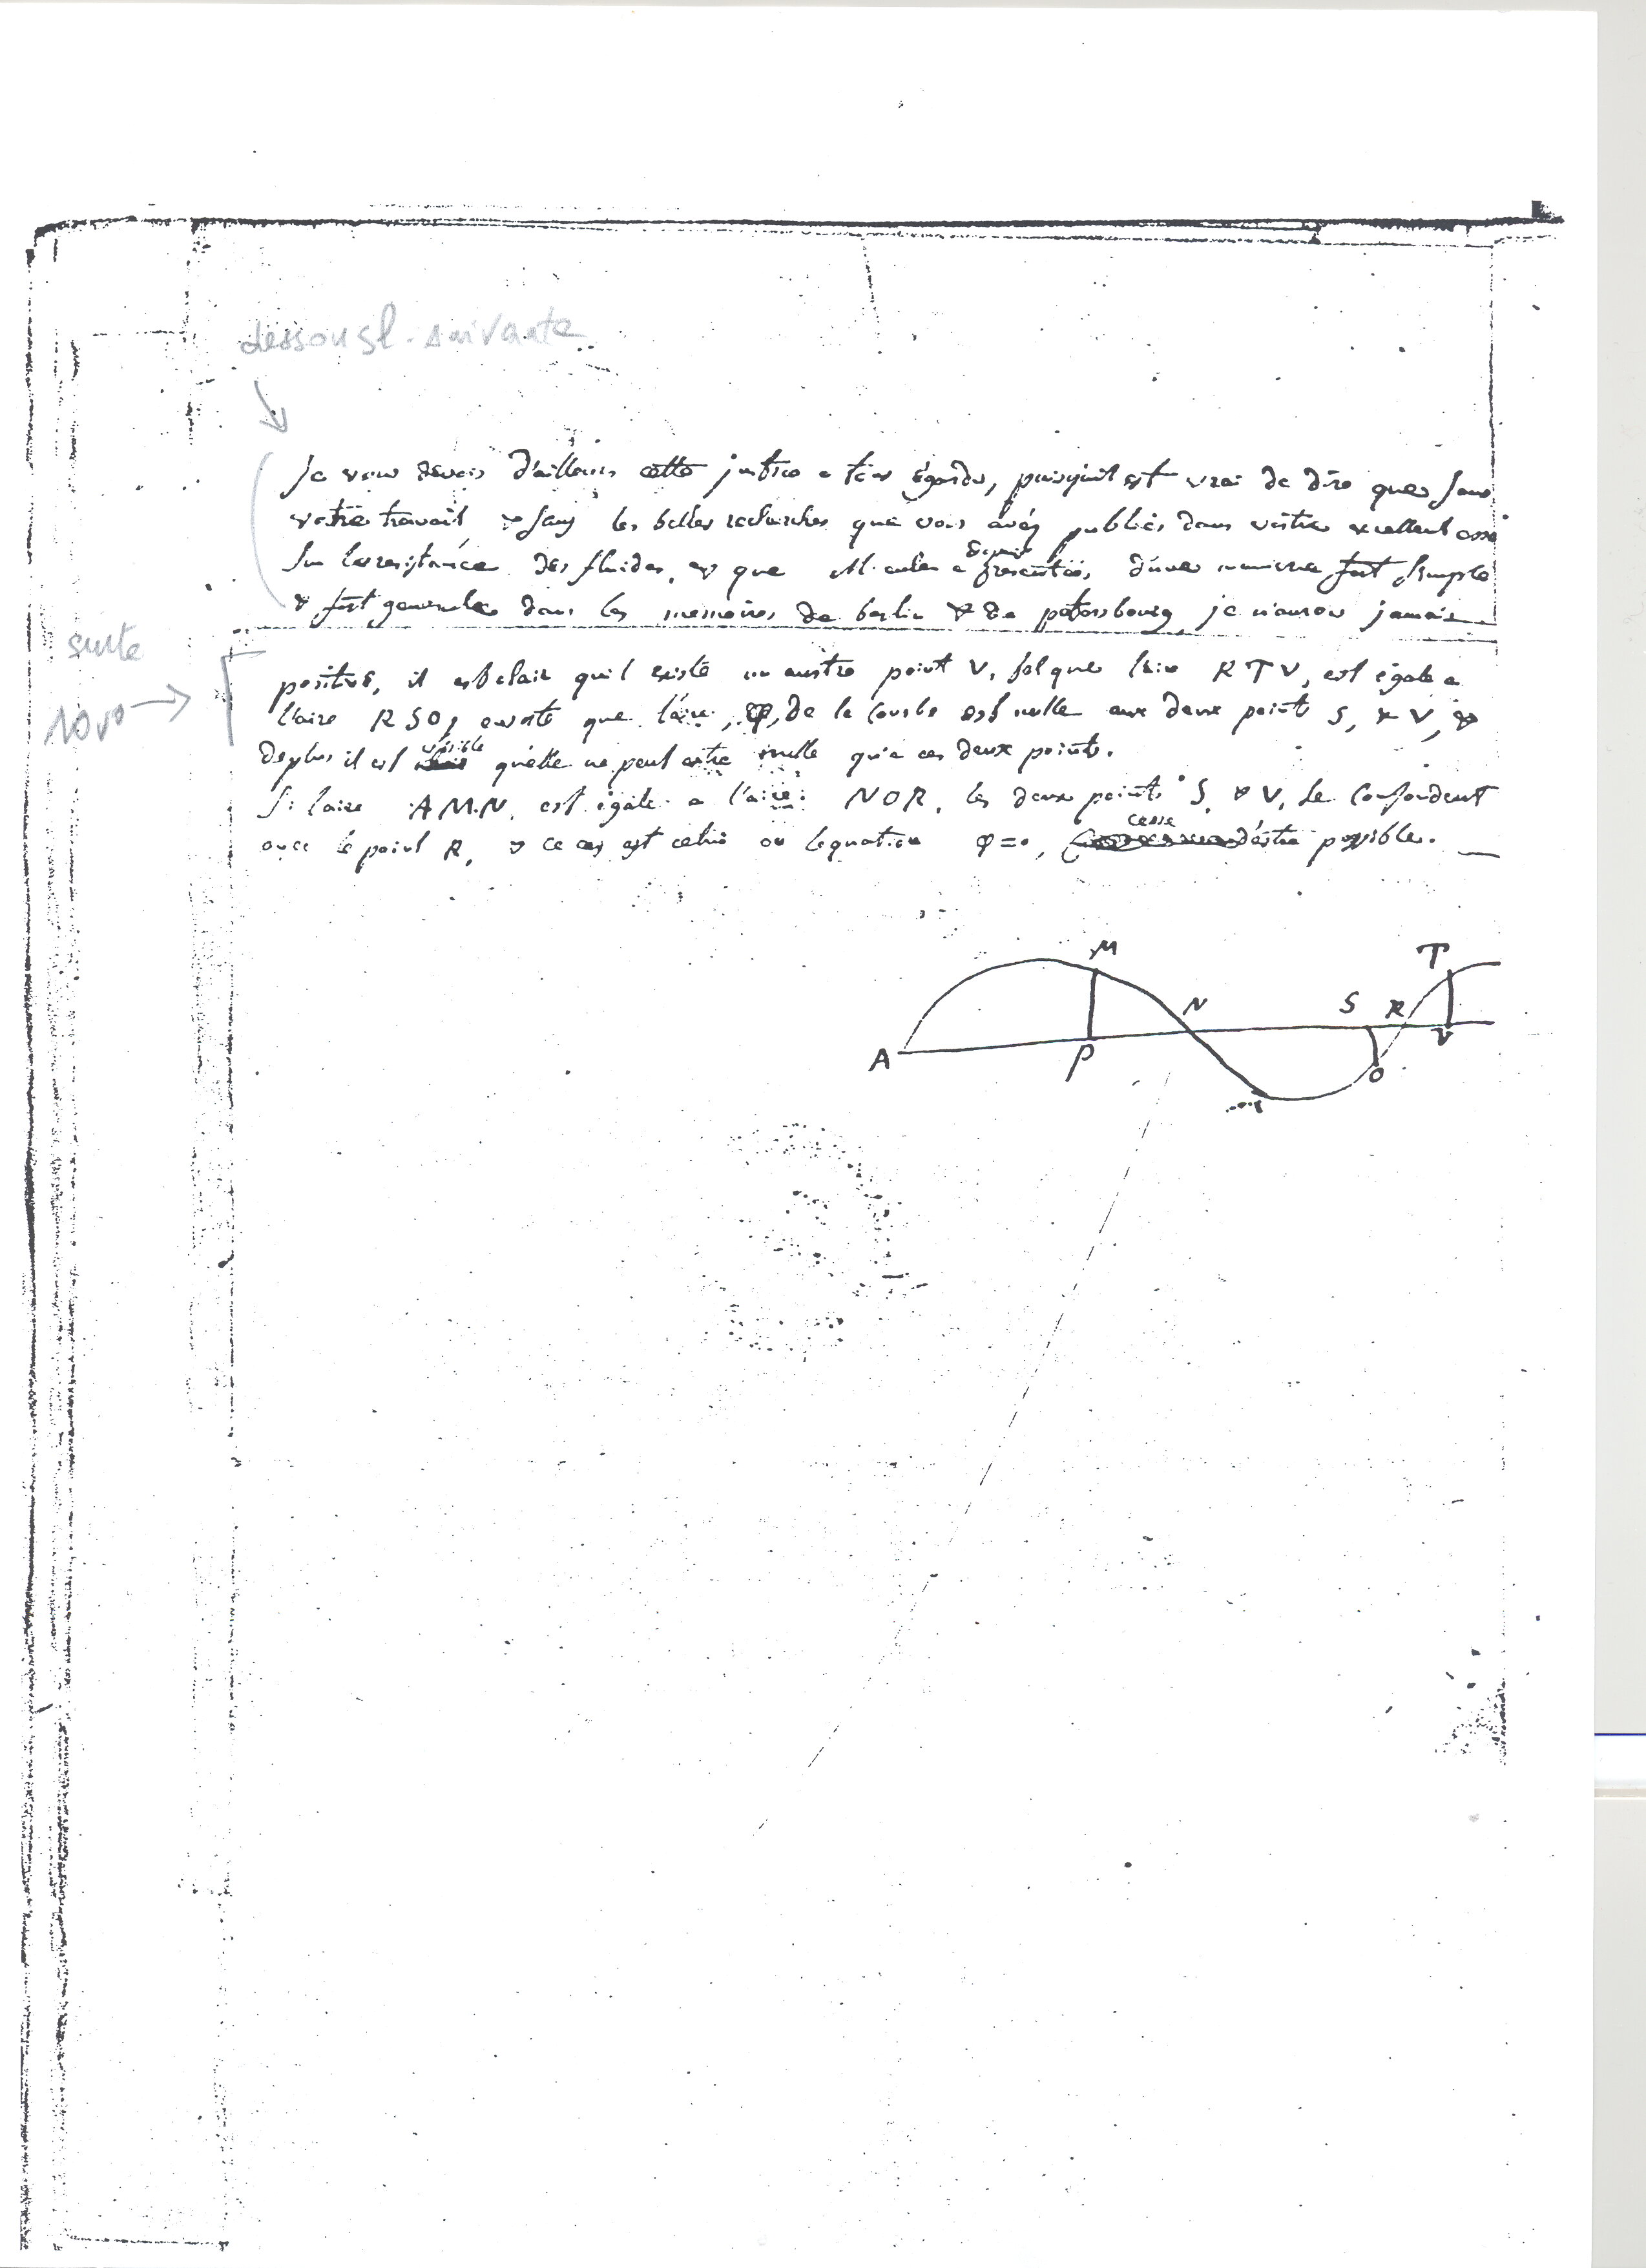 dessous l. suivante
je vous devois d'ailleurs cette justice a tous égards, puisquil est vrai de dire que sans
votre travail & sans les belles recherches que vous avés publiés dans votre excellent essai
sur la resistance des fluides, et que M. euler a depuis presentées, d'une maniere fort simple
& fort generale dans les memoires de berlin & de petersbourg, je n'aurois jamais
suite
10 vo
positive, il est clair quil existe un autre point V, tel que l'aire RTV, est égale a
l'aire RSO, ensorte que l'aire, φ, de la courbe est nulle aux deux point S, & V, &
deplus il est visible quelle ne peut estre nulle qu'a ces deux points.
Si laire AMN, est égale a l'aire NOR, les deux points S, & V, se confondent
avec le point R, & ce cas est celui ou lequation φ=0, cesse d'estre possible.
M
T
N
S
R
A
P
V
O